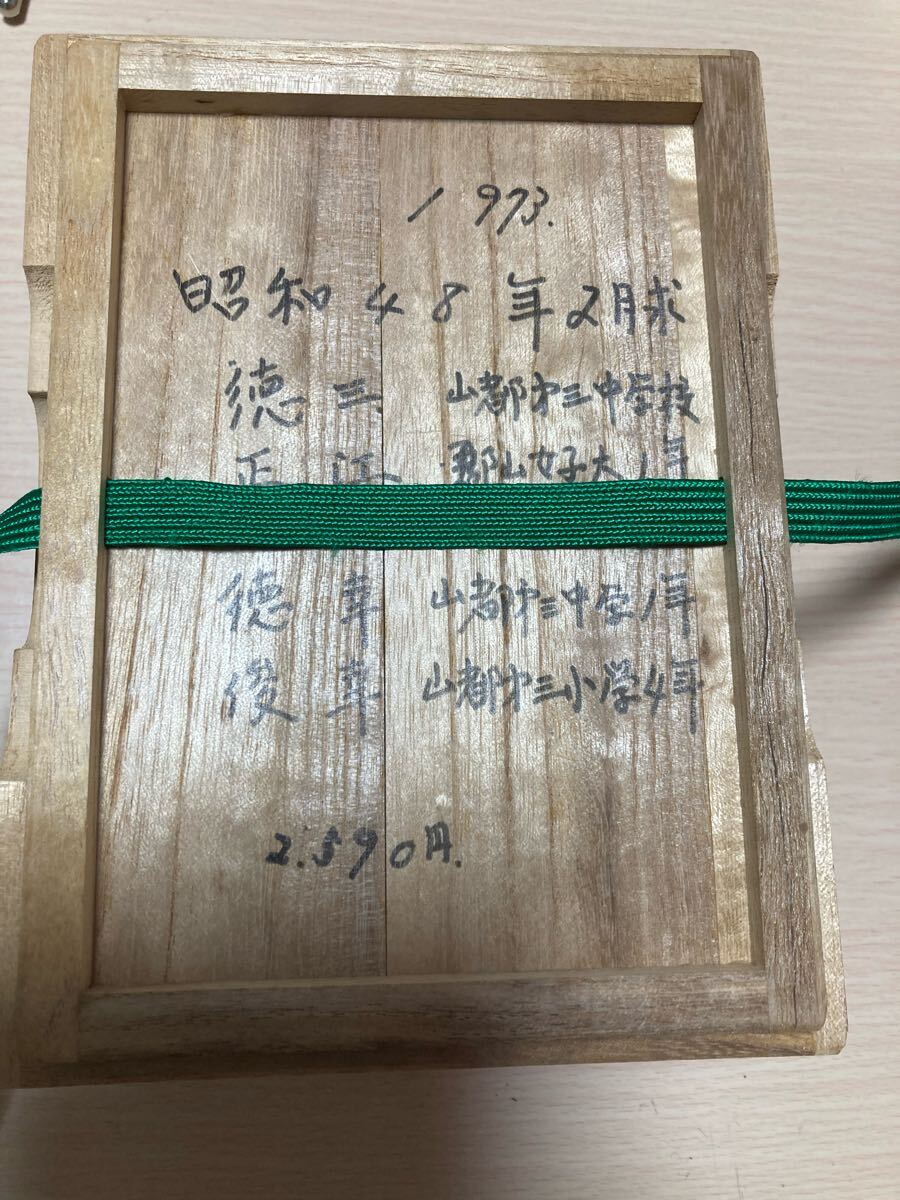 1973.
昭和48年2月求
徳三 山都㐧三中学校
正江 郡山女子大1年
徳幸 山都㐧三中学1年
俊幸 山都㐧三小学4年
2.590円.